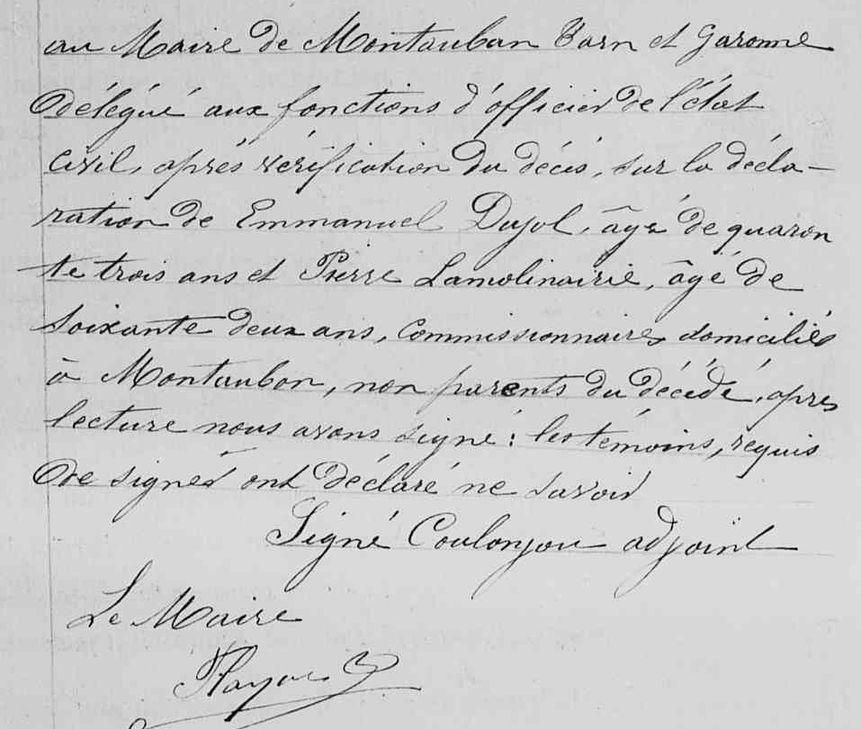 au Maire de Montauban Tarn et Garonne
Délégué aux fonctions d'officier de l'état
Civil, après vérification du décès, sur la décla-
ration de Emmanuel Dujol, âgé de quaran
te trois ans et Pierre Lamolinairie, âgé de
soixante deux ans, commissionnaires domiciliés
à Montauban, non parents du décédé, après
lecture nous avons signé : les témoins, requis
De signer ont déclaré ne savoir
Signé Coulonjou adjoint
Le Maire